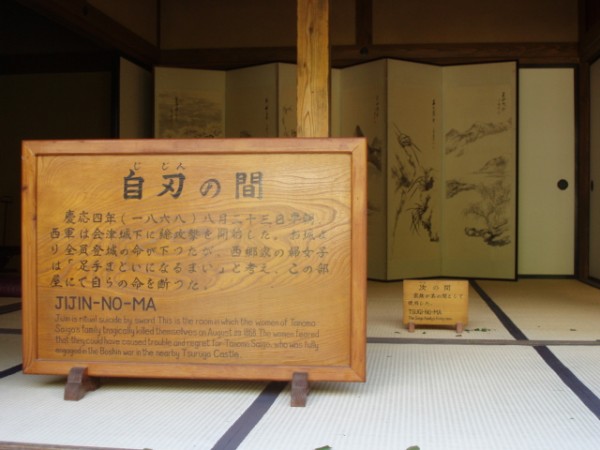 じじん
自刃の間
慶応四年(一八六八)八月二十三日早朝
西軍は会津城下に総攻撃を開始した。お城よ
り全員登城の命が下つたが、西郷家の婦女子
は「足手まといになるまい」と考え、この部
屋にて自らの命を断つた。
JIJIN-NO-MA
Jijin is rituel suicide by sword. This is the room in which the women of Tanomo
Saigo's family tragically killed themselves on August 23 1868. The women feared
that they could have caused trouble and regret for Tanomo Saigo, who was fully
engaged in the Boshin war in the nearby Tsuruga Castle.
次の間
家族の茶の間として
使用した。
TSUGI-NO-MA